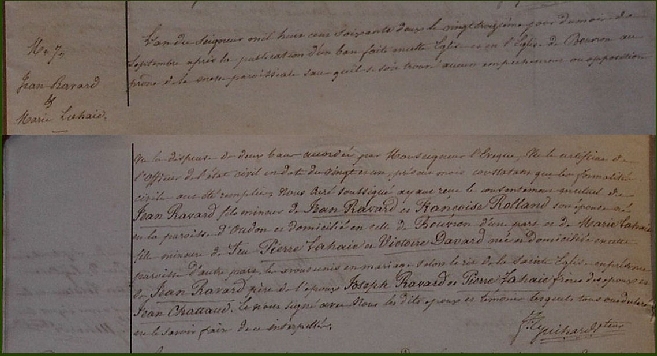 M. 74
Jean Ravard
&
Marie Lahaie.
L'an du Seigneur mil huit cent soixante deux le vingt sixième jour du mois de
Septembre après la publication d'un ban faite en cette Eglise et en l'Eglise de Bouvron au
prône de la messe paroissiale sans qu'il se soit trouvé aucun empêchement ou opposition
Vu la dispense de deux bans accordée par Monseigneur l'Evêque, Vu le certificat de
l'Officier de l'état civil en date du vingt et un, présent mois constatant que les formalités
civiles ont été remplies, Nous curé soussigné ayant reçu le consentement mutuel de
Jean Ravard fils mineur de Jean Ravard et Françoise Rolland son épouse
en la paroisse d'Oudon et domicilié en celle de Bouvron d'une part et de Marie Lahaie
fille mineure de feu Pierre Lahaie et Victoire Davard née et domiciliée en cette
paroisse d'autre part, les avons unis en mariage selon le rit de la Sainte Eglise en présence
de Jean Ravard père de l'époux Joseph Ravard et Pierre Lahaie frères des époux et
Jean Chattaud. Le nous signé avec Nous les dits époux et témoins
ne le savoir faire de ce interpellés.